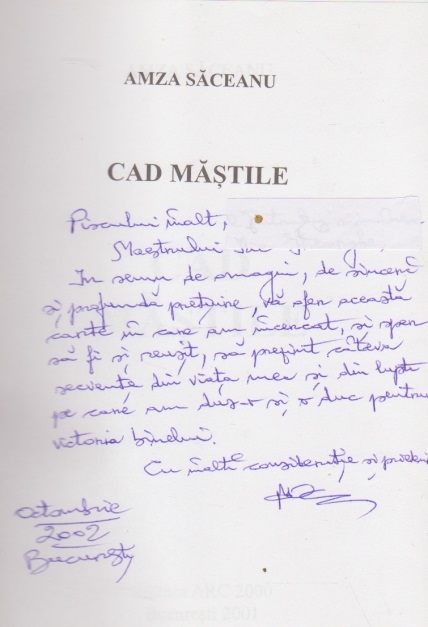 AMZA SĂCEANU
CAD MĂȘTILE
Piscului înalt,
Maestrului
In semn de omagiu, de sinceră
și profundă prețuire, vă ofer această
carte în care am încercat, și sper
să fi și reușit, să prefint câteva
secvențe din viața mea și din lupta
pe care am dus-o și o duc pentru
victoria binelui.
Cu înaltă considerație și prietenie
Octombrie
2002
București
Editura ARC 2000
București 2001